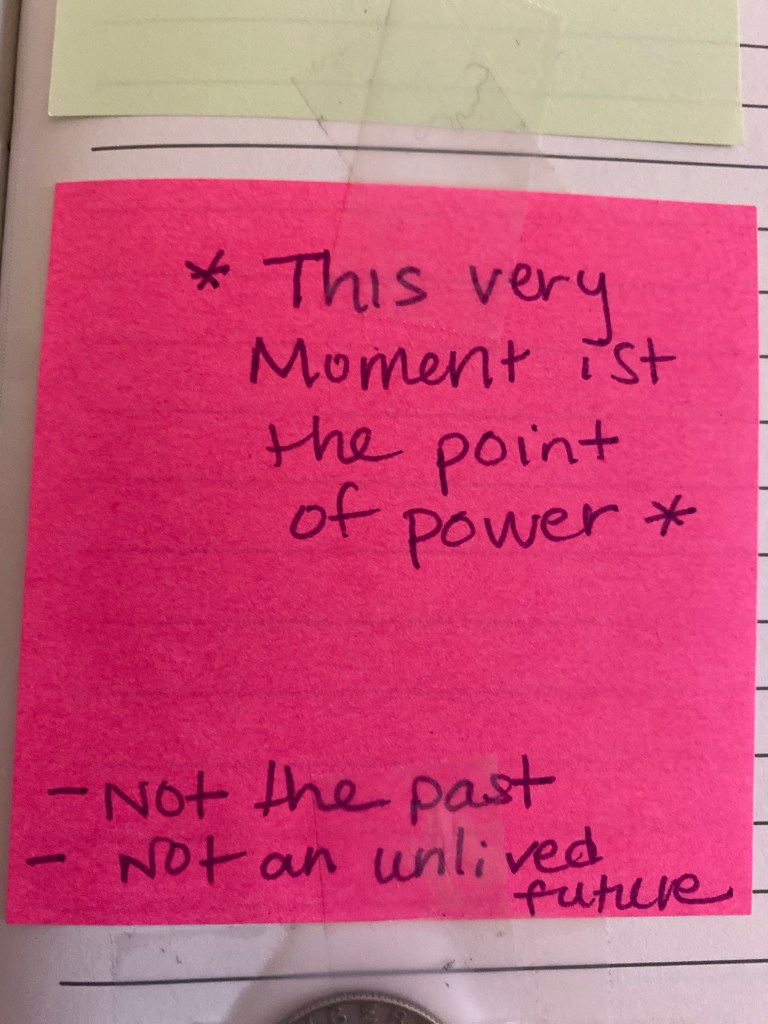 * This very
Moment ist
the point
of power *
- Not the past
- Not an unlived
future